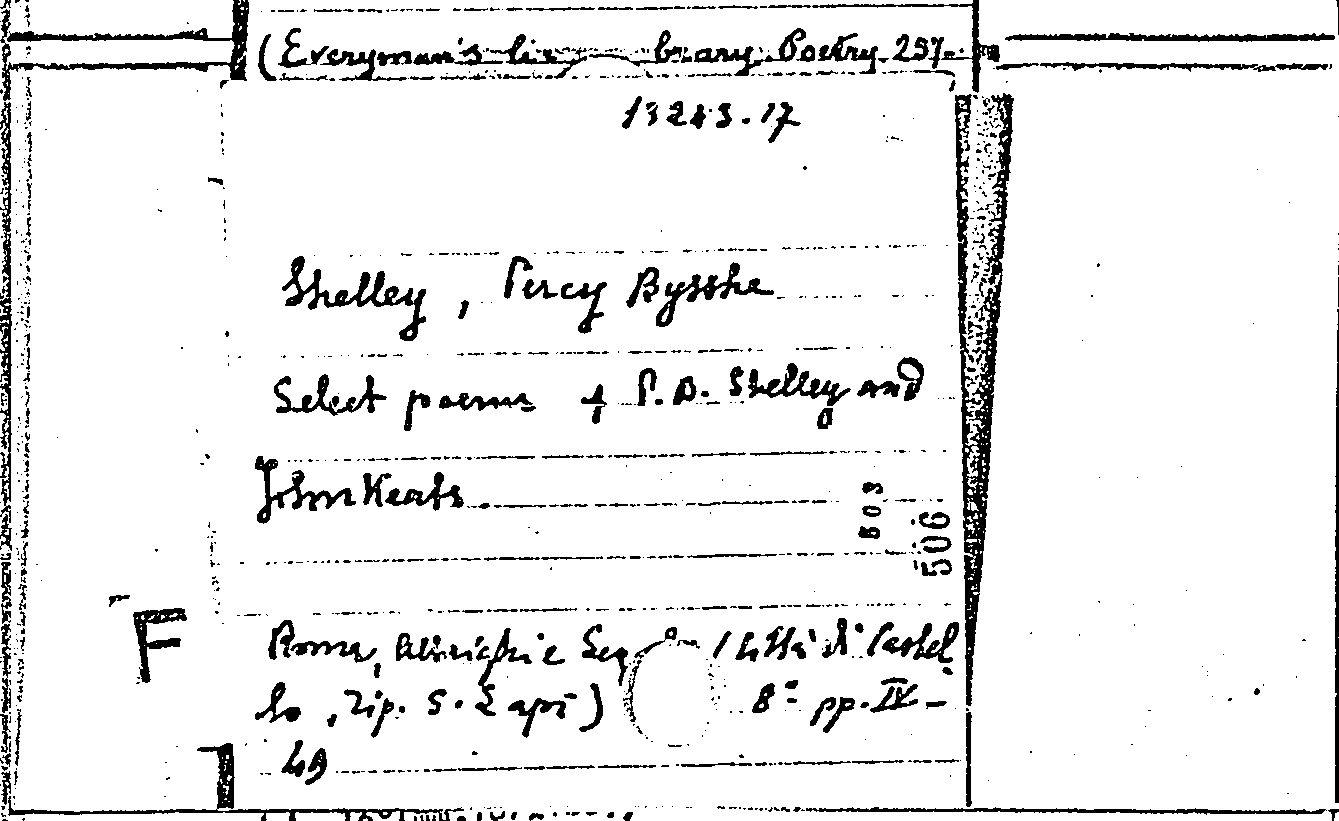 (Everyman's li brary. Poetry. 257.
13243.17
Shelley, Percy Bysshe
Select poems of P.B. Shelley and
John Keats.
503
506
F
Roma, e (Città di Castel
lo, tip. S. Lapi) 8° pp. IV-
49